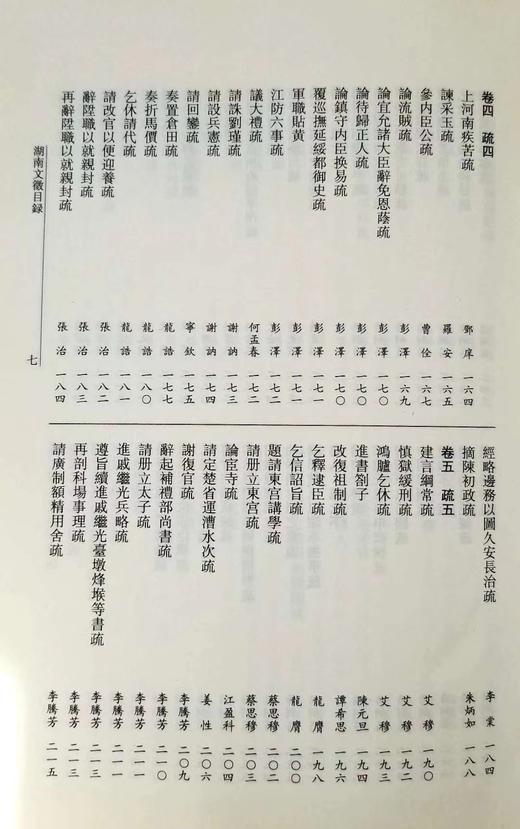 卷四 疏四
上河南疾苦疏 鄧庠 一六四
諫采玉疏 羅安 一六五
參内臣公疏 曹佺 一六七
論流賊疏 彭澤 一六九
論宜允諸大臣辭免恩蔭疏 彭澤 一七〇
論待歸正人疏 彭澤 一七〇
論鎮守内臣换易疏 彭澤 一七〇
覆巡撫延綏都御史疏 彭澤 一七一
軍職貼黄 彭澤 一七一
江防六事疏 彭澤 一七二
議大禮疏 何孟春 一七二
請誅劉瑾疏 謝訥 一七三
請設兵憲疏 謝訥 一七四
請回鑾疏 寧欽 一七五
奏置倉田疏 龍誥 一七七
奏折馬價疏 龍誥 一八〇
乞休請代疏 龍誥 一八一
請改官以便迎養疏 張治 一八二
辭陞職以就親封疏 張治 一八三
再辭陞職以就親封疏 張治 一八四
經略邊務以圖久安長治疏 李棠 一八四
摘陳初政疏 朱炳如 一八八
卷五 疏五
建言綱常疏 艾穆 一九〇
慎獄緩刑疏 艾穆 一九二
鴻臚乞休疏 艾穆 一九三
進書劄子 陳元旦 一九四
改復祖制疏 譚希思 一九六
乞釋逮臣疏 龍膺 一九八
乞信詔旨疏 龍膺 二〇〇
題請東宫講學疏 蔡思穆 二〇二
請册立東宫疏 蔡思穆 二〇三
論宦寺疏 江盈科 二〇四
請定楚省運漕水次疏 姜性 二〇六
謝復官疏 李騰芳 二〇九
辭起補禮部尚書疏 李騰芳 二一〇
請册立太子疏 李騰芳 二一一
進戚繼光兵略疏 李騰芳 二一一
遵旨續進戚繼光臺墩烽堠等書疏 李騰芳 二一三
再剖科場事理疏 李騰芳 二一三
請廣制額精用舍疏 李騰芳 二一五
湖南文徵目録
七